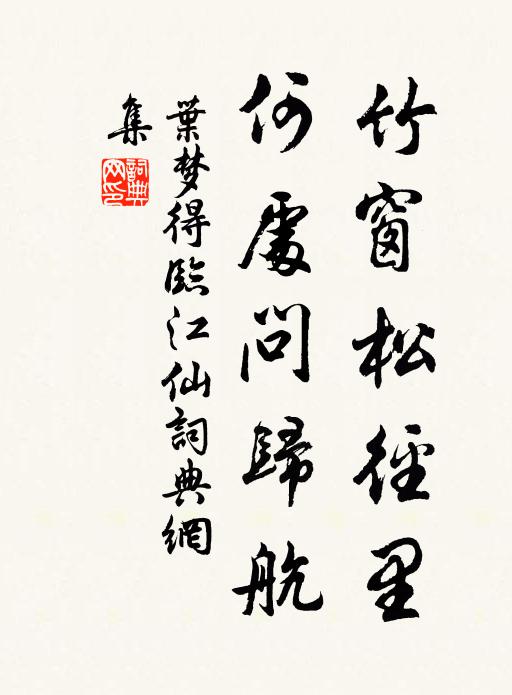 竹窗松徑里
何處問歸航
葉梦得臨江仙詞典網
集
詞典网印